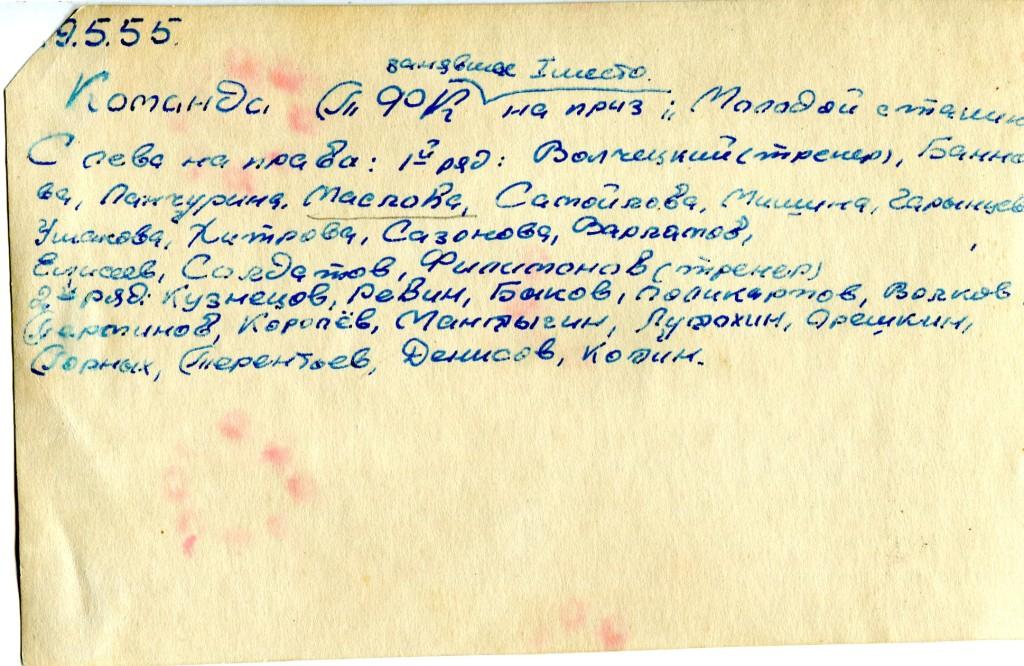 9.5.55.
занявшая I место.
Команда на приз „Молодой сталин
С лева на права: 1й ряд: Волчецкий (тренер), Банно
ва, Панчурина, Маслова, Самойлова, Мишина, Гарынцев
Ушакова, Хитрова, Сазонова, Варламов,
Елисеев, Солдатов, Филимонов (тренер)
2й ряд: Кузнецов, Ревин, Быков, Поликарпов, Волков
Королёв, Мантыгин, Лутохин, Орешкин,
Горных, Терентьев, Денисов, Котин.